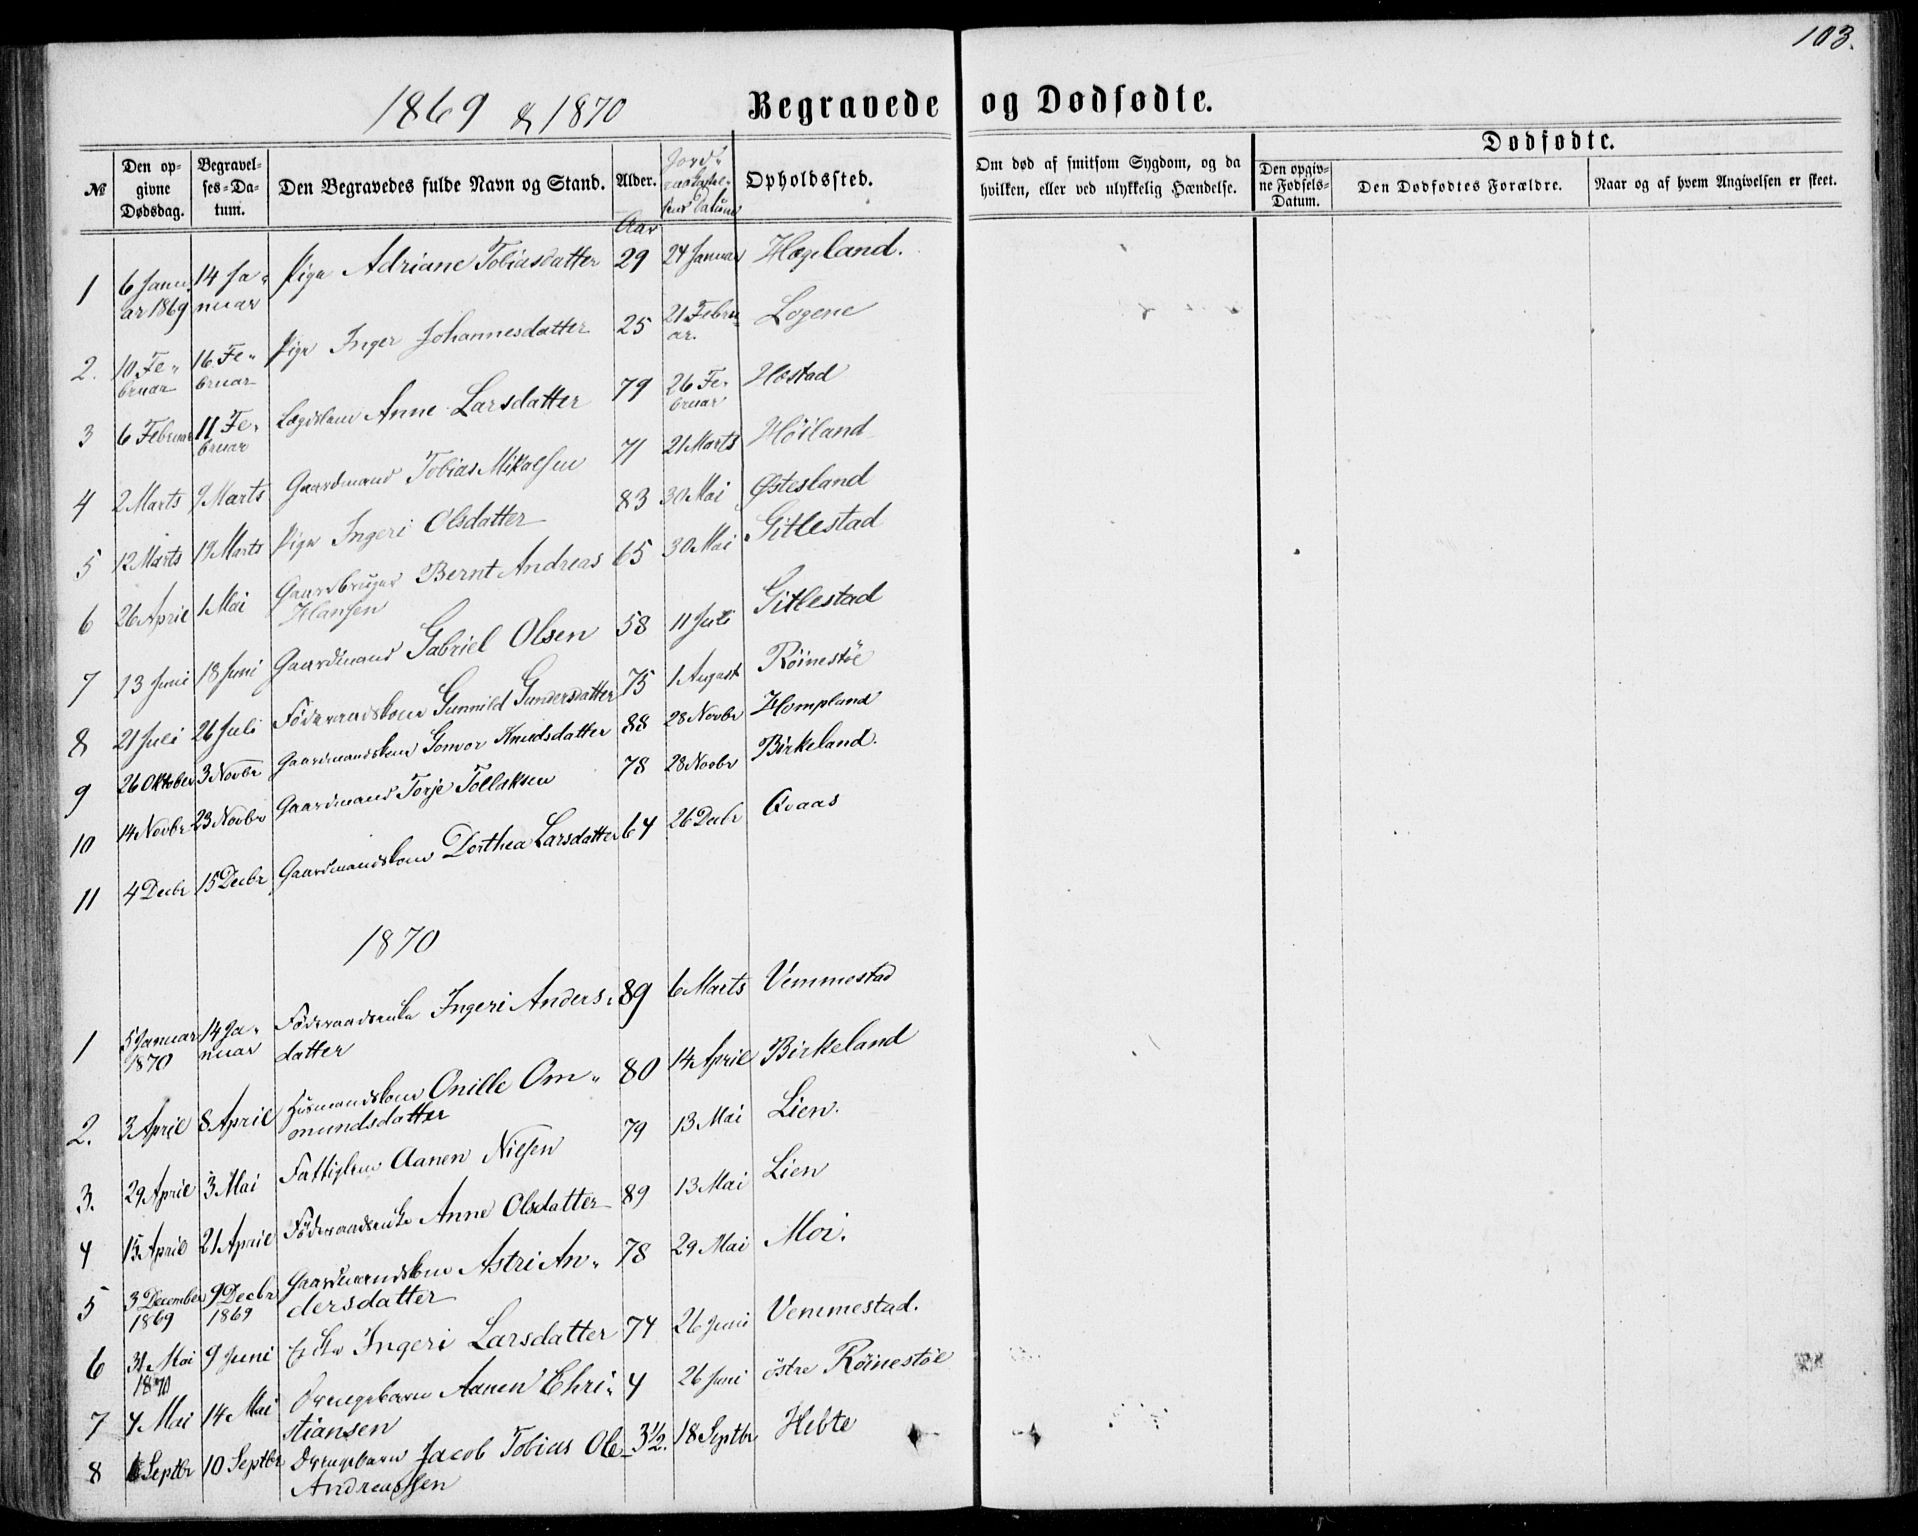 103.
1869 & 1870 Begravede og Dødfødte.
Dødfødte.
№ Den opgivne Dødsdag. Begravelses-Datum. Den Begravedes fulde Navn og Stand. Alder. Jord Datum Opholdssted. Om død af smitsom Sygdom, og da hvilken, eller ved ulykkelig Hændelse. Den opgivne Fødsels-Datum. Den Dødfødtes Forældre. Naar og af hvem Angivelsen er skeet.
Aar
1 6 Januar 1869 14 Januar Pige Adriane Tobiasdatter 29 24 Januar Hægeland.
2. 10 Februar 16 Februar Pige Inger Johannesdatter 25 21 Februar. Logene
3 6 Februar 11 Februar Lægdslem Anne Larsdatter 79 26 Februar Hæstad
4 2 Marts 9 Marts Gaardmand Tobias Mikalsen 71 21 Marts Høiland
5 12 Marts 19 Marts Pige Ingeri Olsdatter 83 30 Mai Østesland
6 26 April 1 Mai Gaardbruger Bernt Andreas Hansen 65 30 Mai Gitlestad
7 13 Juni 18 Juni Gaardmand Gabriel Olsen 58 11 Juli Gitlestad
8 21 Juli 26 Juli Føderaadskone Gunnild Gundersdatter 75 1 August Røinestøe
9 26 Oktober 3 Novbr Gaardmandskone Gonvor Knudsdatter 88 28 Novbr Hompland
10 14 Novbr 23 Novbr Gaardmand Torje Tollaksen 78 28 Novbr Birkeland.
11 4 Decbr 15 Decbr Gaardmandskone Dorthea Larsdatter 64 26 Decbr Aaas
1870
1 5 Januar 1870 14 Januar Føderaadsenke Ingeri Andersdatter 89 6 Marts Vemmestad
2. 3 April 8 April Husmandskone Onille Ommundsdatter 80 14 April Birkeland
3. 29 April 3 Mai Fattiglem Aanen Nielsen 79 13 Mai Lien.
4 15 April 21 April Føderaadsenke Anne Olsdatter 89 13 Mai Lien
5 3 December 1869 9 Decbr 1869 Gaardmandskone Astri Andersdatter 78 29 Mai Moi.
6 31 Mai 1870 9 Juni Enke Ingeri Larsdatter 74 26 Juni Vemmestad.
7 7 Mai 14 Mai Drengebarn Aanen Christiansen 4 26 Juni østre Røinestøe
8 Septbr 10 Septbr Drengebarn Jacob Tobias Ole Andreassen 3½. 18 Septbr Hebte